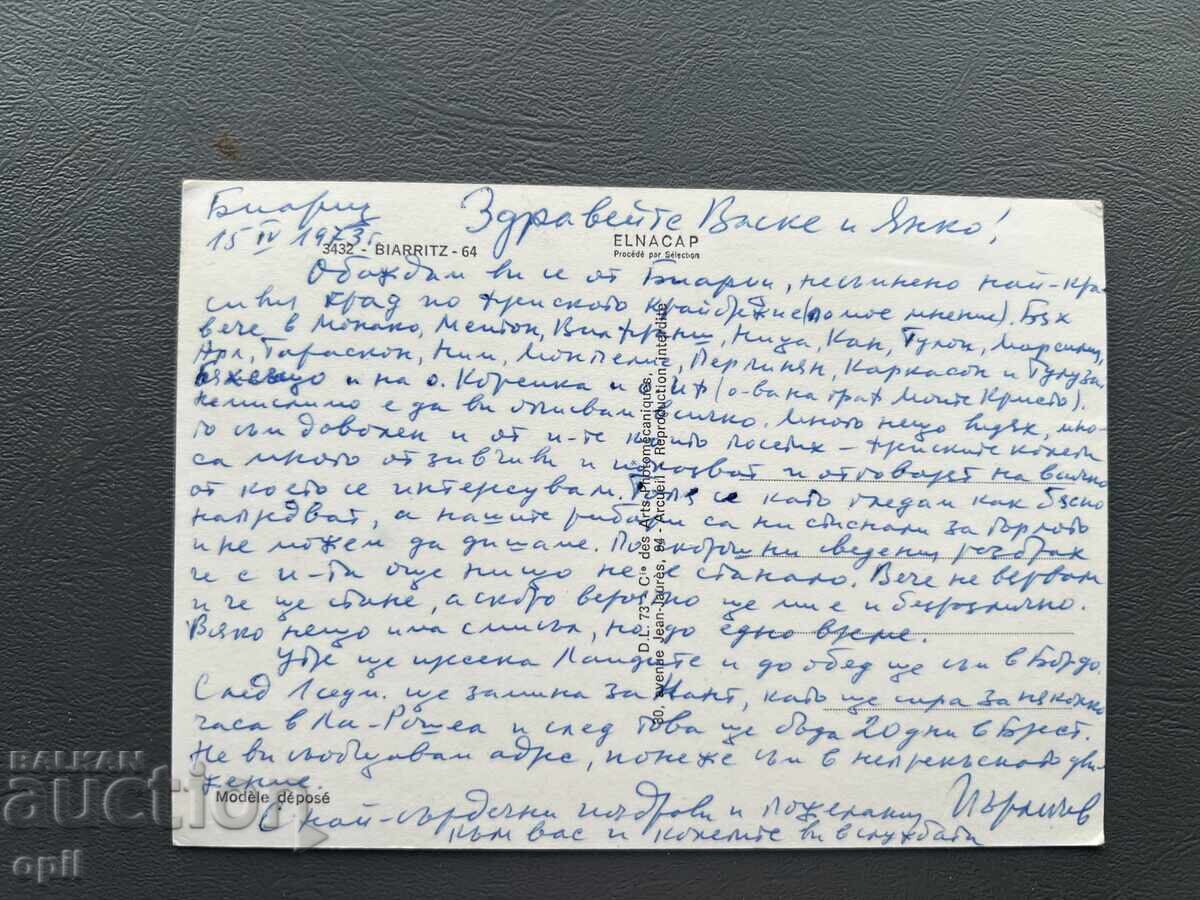 Биариц
15 IV 1973г.
Здравейте Васке и Янко!
3432 - BIARRITZ - 64
ELNACAP
Procédé par Sélection
Обаждам ви се от Биариц, несъмнено най-кра-
сивия град по френското крайбрежие (по мое мнение). Бях
вече в Монако, Ментон, Вилфранш, Ница, Кан, Тулон, Марсилия,
Арл, Тараскон, Ним, Монпелие, Перпинян, Каркасон и Тулуза.
и на о. Корсика и Иф (о-ва на граф Монте Кристо).
Немислимо е да ви описвам всичко. Много нещо видях, мно-
го съм доволен и от и-те които посетих - френските колеги
са много отзивчиви и показват и отговарят на всичко
от което се интересувам. се като гледам как бясно
напредват, а нашите са ни стиснали за гърлото
и не можем да дишаме. По сведения разбрах
че с и-та още нищо не е станало. Вече не вярвам
и че ще стане, а скоро вероятно ще ми е и безразлично.
Всяко нещо има смисъл, но до едно време.
Утре ще пресека Ландите и до обед ще съм в Бордо.
След 1 седм. ще замина за Нант, като ще спра за няколко
часа в Ла-Рошел и след това ще бъда 20 дни в Брест.
Не ви съобщавам адрес, понеже съм в непрекъснато дви-
жение.
Modèle déposé
С най-сърдечни поздрави и пожелания
към вас и колегите ви в службата
D.L. 73 - Cie des Arts Photomécaniques,
80, avenue Jean-Jaurès, 94 - Arcueil Reproduction interdite
BALKAN
auction
opil